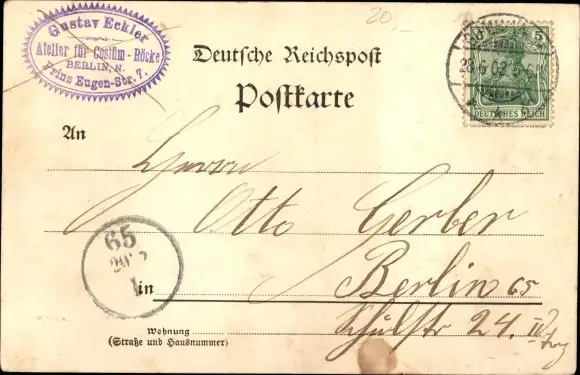 Gustav Eckler
Atelier für Costüm-Röcke
BERLIN, N.
Prinz Eugen-Str. 7.
20.
Deutsche Reichspost
Postkarte
28 6 03 5-6
5
DEUTSCHES REICH
An
Herrn
Otto Gerber
65
in Berlin 65
Wohnung
(Straße und Hausnummer)
24. III